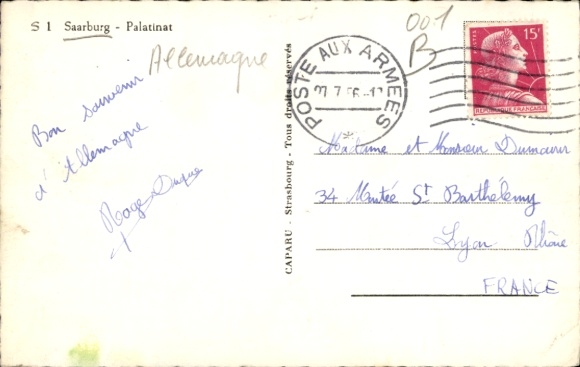 S 1 Saarburg - Palatinat
Allemagne
Bon souvenir
d'Allemagne
Roger
CAPARU - Strasbourg - Tous droits réservés
POSTE AUX ARMEES
7 56
001
B
15F
REPUBLIQUE FRANÇAISE
Madame et Monsieur
34 Montée St Barthélemy
Lyon Rhône
FRANCE